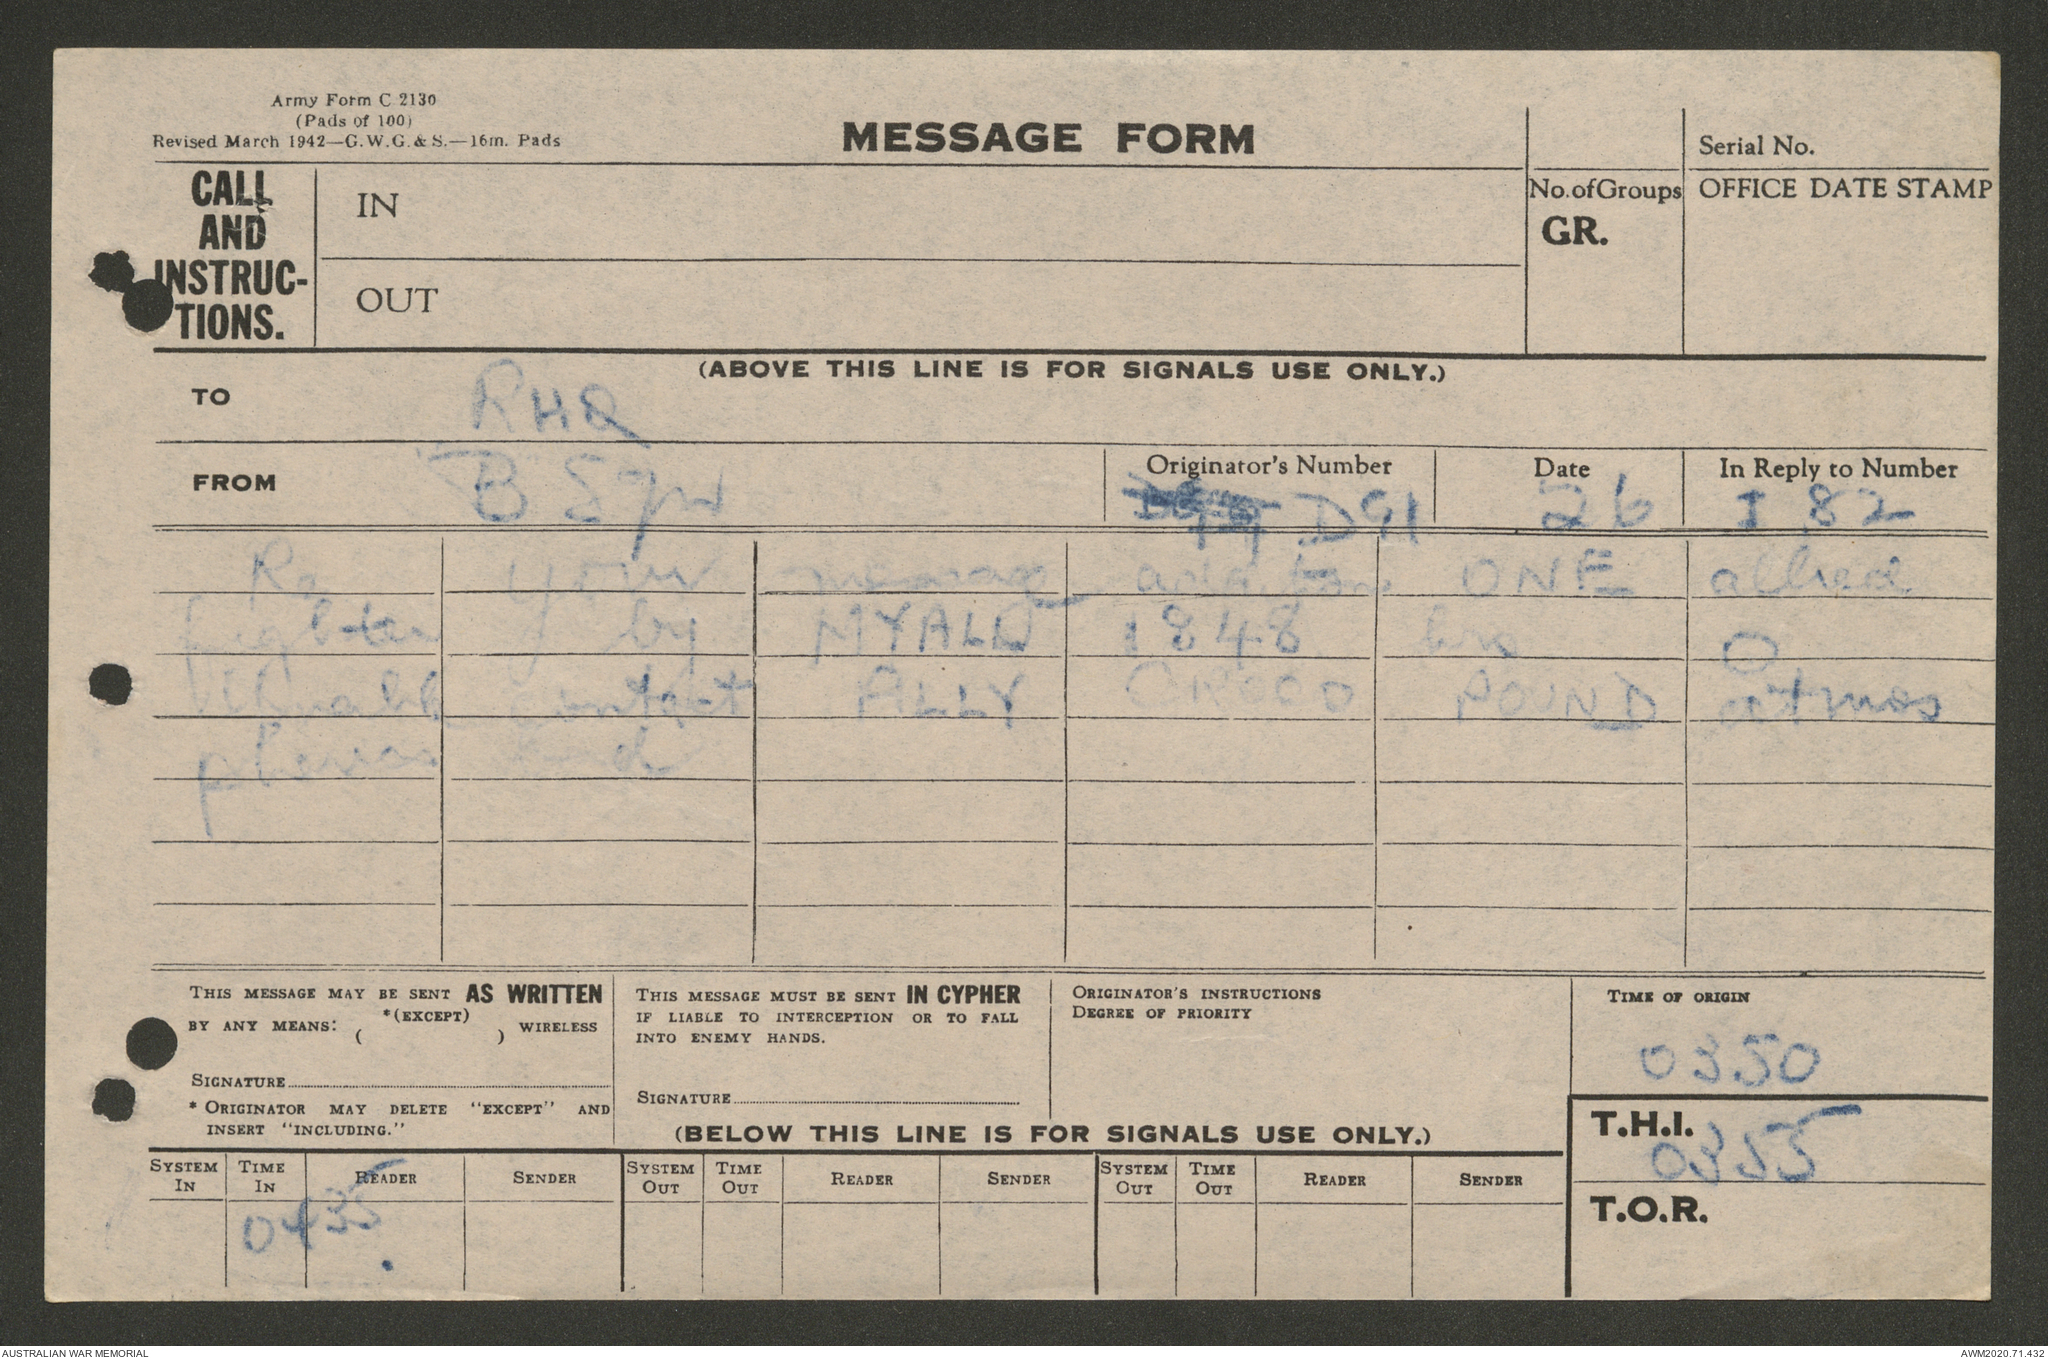 Army Form C 2130
(Pads of 100)
Revised March 1942—G.W.G.& S.—16m. Pads
MESSAGE FORM
Serial No.
CALL AND INSTRUC-TIONS.
IN
No. of Groups
GR.
OFFICE DATE STAMP
OUT
(ABOVE THIS LINE IS FOR SIGNALS USE ONLY.)
TO RHQ
FROM B Sqn
Originator's Number D91
Date 26
In Reply to Number I 82
Re your message addition ONE allied
fighter by MYALL 1848 hrs O
Unable contact ALLY CROCO POUND atmos
pherics bad
THIS MESSAGE MAY BE SENT AS WRITTEN
BY ANY MEANS: *(EXCEPT) ( ) WIRELESS
SIGNATURE
* ORIGINATOR MAY DELETE "EXCEPT" AND
INSERT "INCLUDING."
THIS MESSAGE MUST BE SENT IN CYPHER
IF LIABLE TO INTERCEPTION OR TO FALL
INTO ENEMY HANDS.
SIGNATURE
ORIGINATOR'S INSTRUCTIONS
DEGREE OF PRIORITY
TIME OF ORIGIN
0350
(BELOW THIS LINE IS FOR SIGNALS USE ONLY.)
T.H.I.
0355
SYSTEM IN TIME IN READER SENDER SYSTEM OUT TIME OUT READER SENDER SYSTEM OUT TIME OUT READER SENDER
0435
T.O.R.
AUSTRALIAN WAR MEMORIAL
AWM2020.71.432